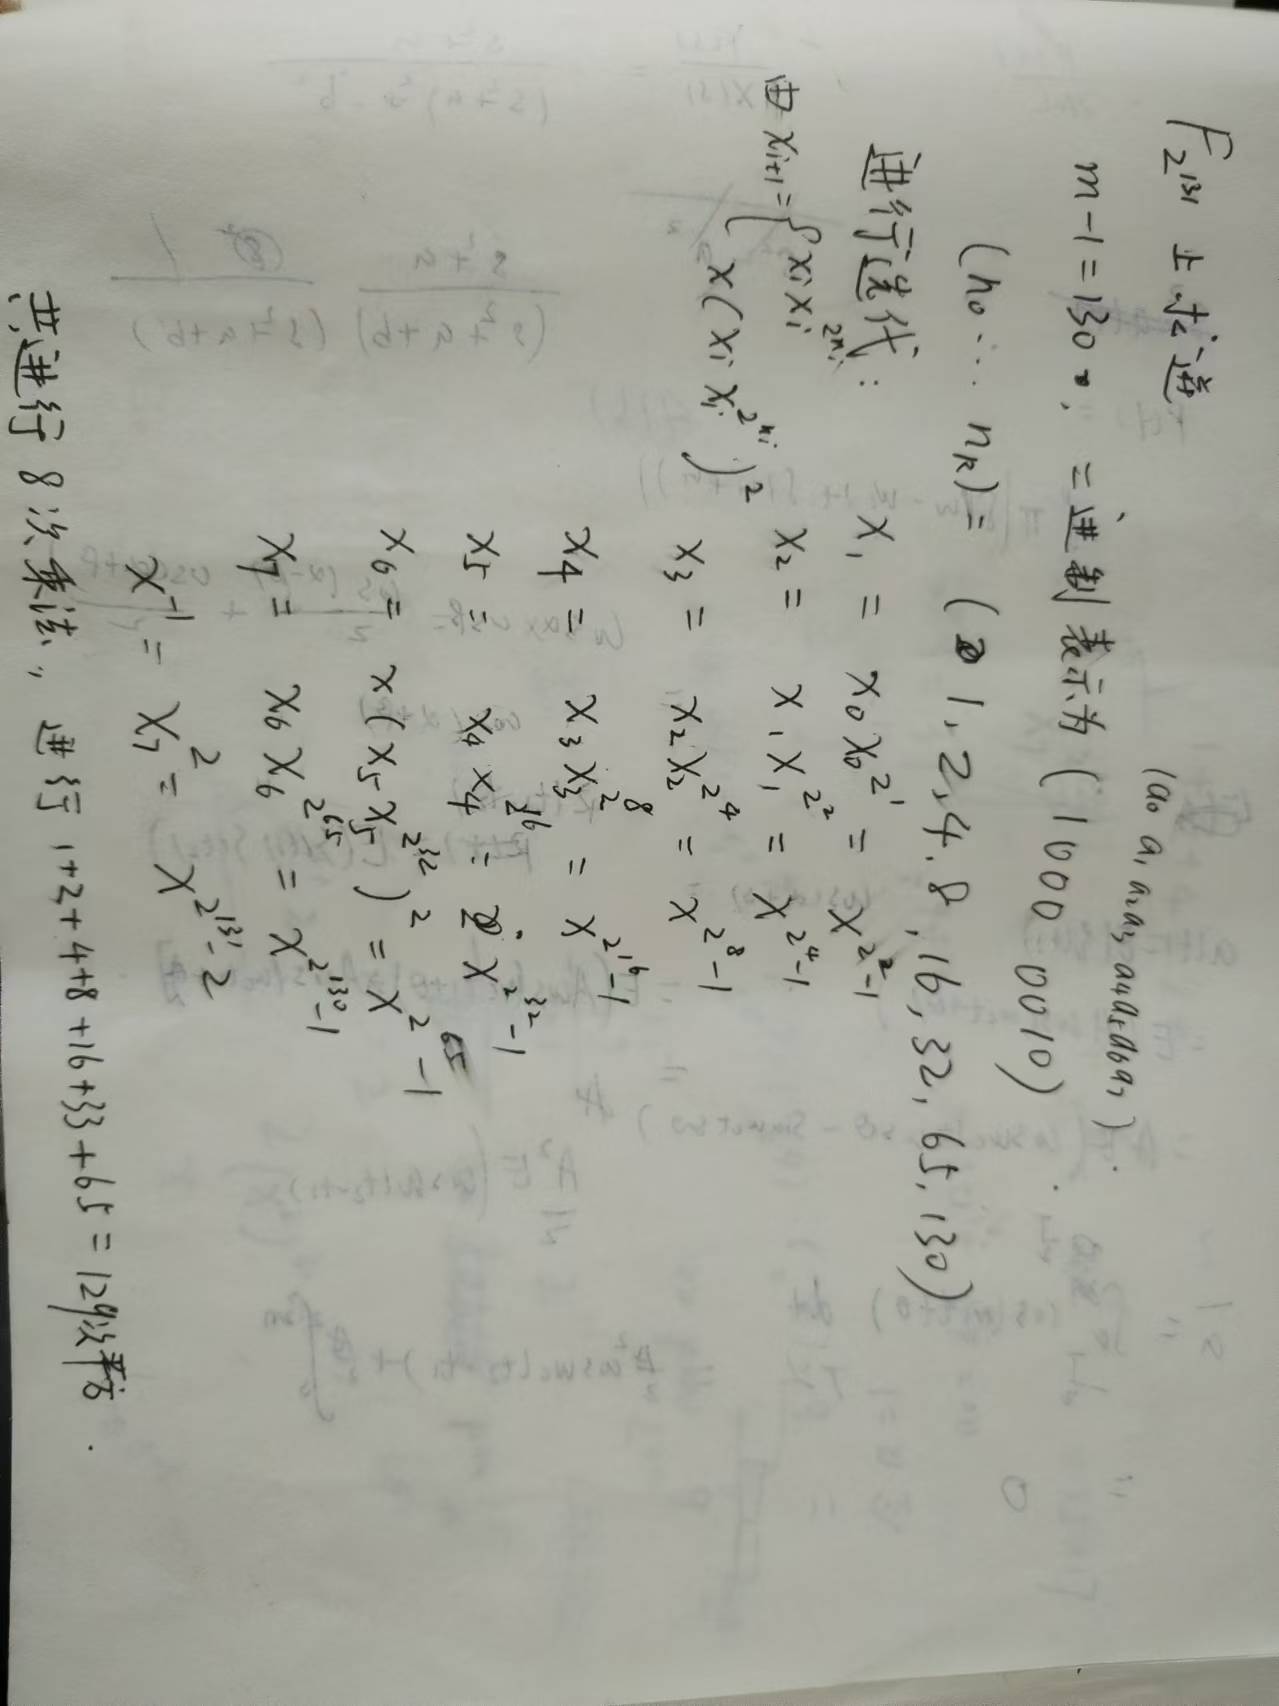 F_{2^{131}} 上求逆
(a₀ a₁ a₂a₃ a₄a₅a₆a₇)
m-1=130, 二进制表示为 (1000 0010)
(n₀ ... n_R) = (1, 2, 4, 8, 16, 32, 65, 130)
进行迭代: x₁ = x₀ x₀^{2^1} = x^{2^2-1}
由 x_{i+1} = { x_i x_i^{2^{n_i}}
x(x_i x_i^{2^{n_i}})^2
x₂ = x₁ x₁^{2^2} = x^{2^4-1}
x₃ = x₂ x₂^{2^4} = x^{2^8-1}
x₄ = x₃ x₃^{2^8} = x^{2^{16}-1}
x₅ = x₄ x₄^{2^{16}} = x^{2^{32}-1}
x₆ = x(x₅ x₅^{2^{32}})^2 = x^{2^{65}-1}
x₇ = x₆ x₆^{2^{65}} = x^{2^{130}-1}
x^{-1} = x₇^2 = x^{2^{131}-2}
共进行 8 次乘法, 进行 1+2+4+8+16+33+65=129次平方.